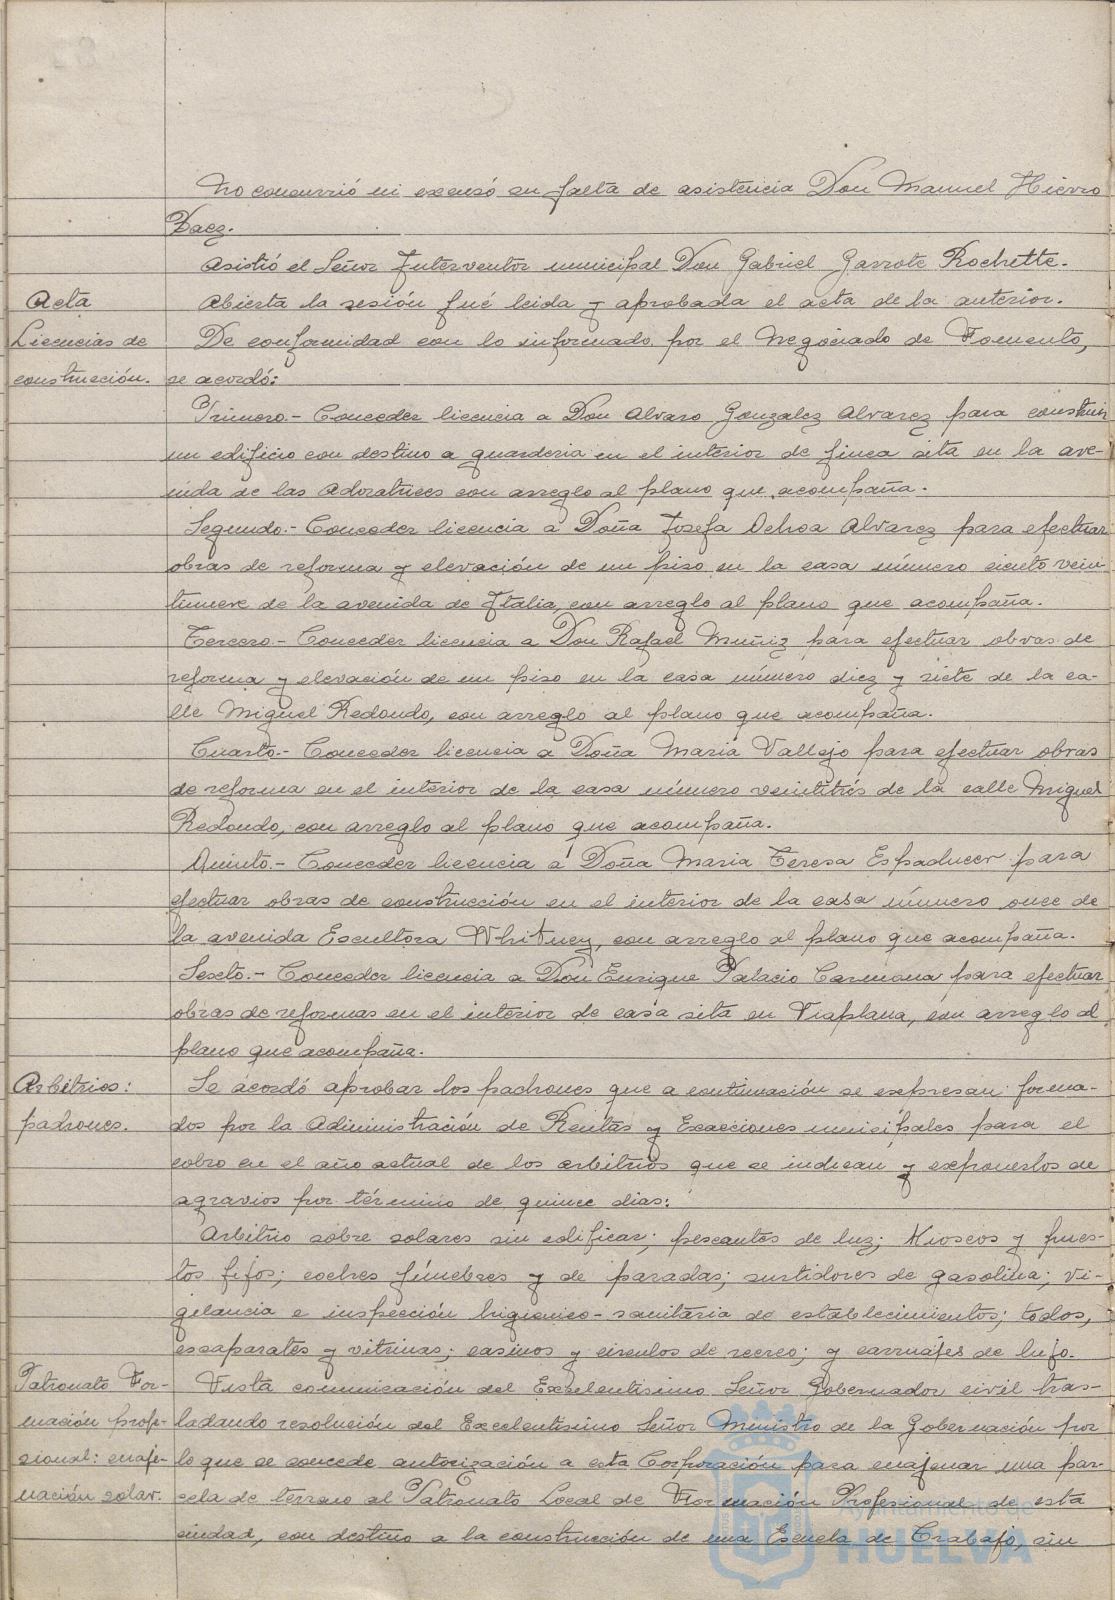 No concurrió ni excusó su falta de asistencia Don Manuel Hierro
Daez.
Asistió el Señor Interventor municipal Don Gabriel Garrote Rochette.
Acta
Abierta la sesión fué leida y aprobada el acta de la anterior.
Licencias de
De conformidad con lo informado por el Negociado de Fomento,
construcción.
se acordó:
Primero.- Conceder licencia a Don Alvaro Gonzalez Alvarez para construir
un edificio con destino a guarderia en el interior de finca sita en la ave-
nida de las Adoratrices con arreglo al plano que acompaña.
Segundo.- Conceder licencia a Doña Josefa Ochoa Alvarez para efectuar
obras de reforma y elevación de un piso en la casa número ciento vein-
tinueve de la avenida de Italia, con arreglo al plano que acompaña.
Tercero.- Conceder licencia a Don Rafael Muñiz para efectuar obras de
reforma y elevación de un piso en la casa número diez y siete de la ca-
lle Miguel Redondo, con arreglo al plano que acompaña.
Cuarto.- Conceder licencia a Doña Maria Vallejo para efectuar obras
de reforma en el interior de la casa número veintitrés de la calle Miguel
Redondo, con arreglo al plano que acompaña.
Quinto.- Conceder licencia a Doña Maria Teresa Espaducer para
efectuar obras de construcción en el interior de la casa número once de
la avenida Escultora Whitney, con arreglo al plano que acompaña.
Sexto.- Conceder licencia a Don Enrique Palacio Carmona para efectuar
obras de reformas en el interior de casa sita en Viaplana, con arreglo al
plano que acompaña.
Arbitrios:
Se acordó aprobar los padrones que a continuación se expresan forma-
padrones.
dos por la Administración de Rentas y Exacciones municipales para el
cobro en el año actual de los arbitrios que se indican y exponerlos de
agravios por término de quince dias:
Arbitrio sobre solares sin edificar; pescantes de luz; Kioscos y pues-
tos fijos; coches fúnebres y de paradas; surtidores de gasolina; vi-
gilancia e inspección higienico-sanitaria de establecimientos; todos,
escaparates y vitrinas; casinos y circulos de recreo; y carruajes de lujo.
Patronato For-
Vista comunicación del Excelentisimo Señor Gobernador civil tras-
mación profe-
ladando resolución del Excelentisimo Señor Ministro de la Gobernación por
sional: enaje-
lo que se concede autorización a esta Corporación para enajenar una par-
nación solar.
cela de terreno al Patronato Local de Formación Profesional de esta
ciudad, con destino a la construcción de una Escuela de Trabajo, sin
Ayuntamiento de
HUELVA